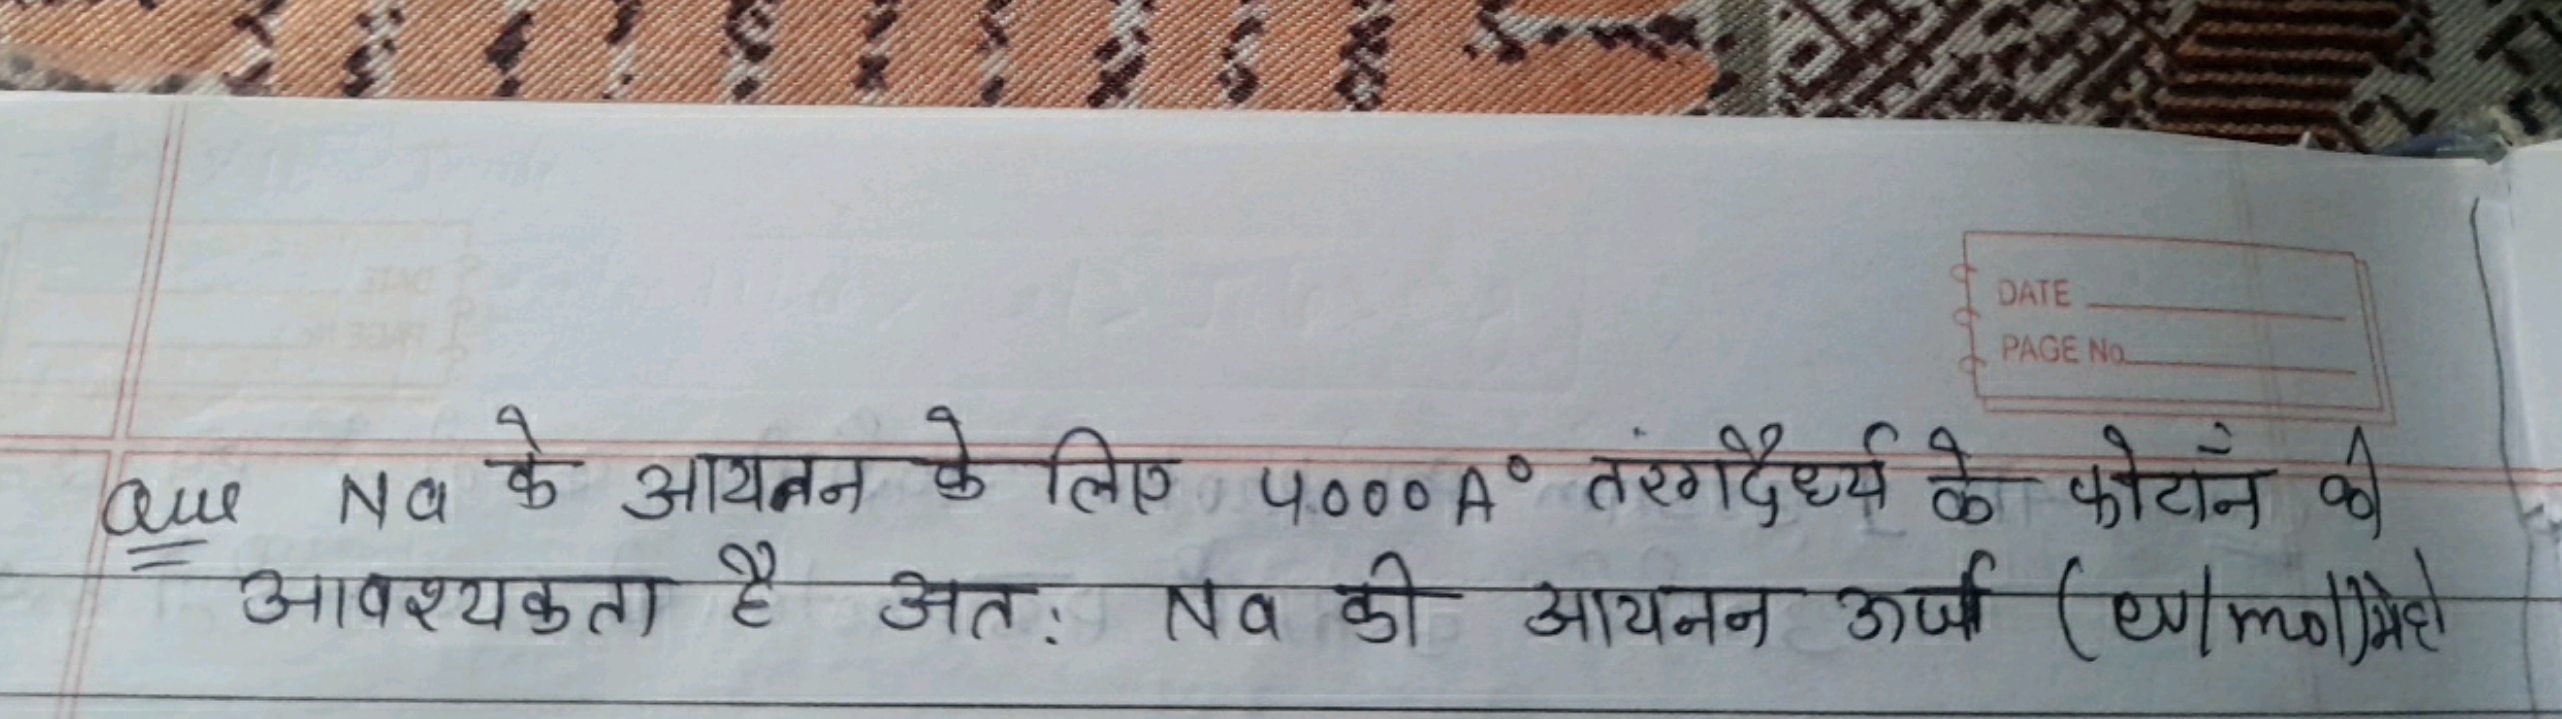 DATE
PAGE No.
Que Na के आयनन के लिए 4000A° तंरगदैर्ध्य के फोटॉन की
आवश्यकता है अत: Na की आयनन ऊर्जा (ev/mol)मे है